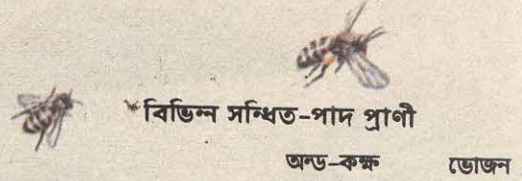 বিভিন্ন সন্ধিত-পাদ প্রাণী
অন্ড-কক্ষ ভোজন